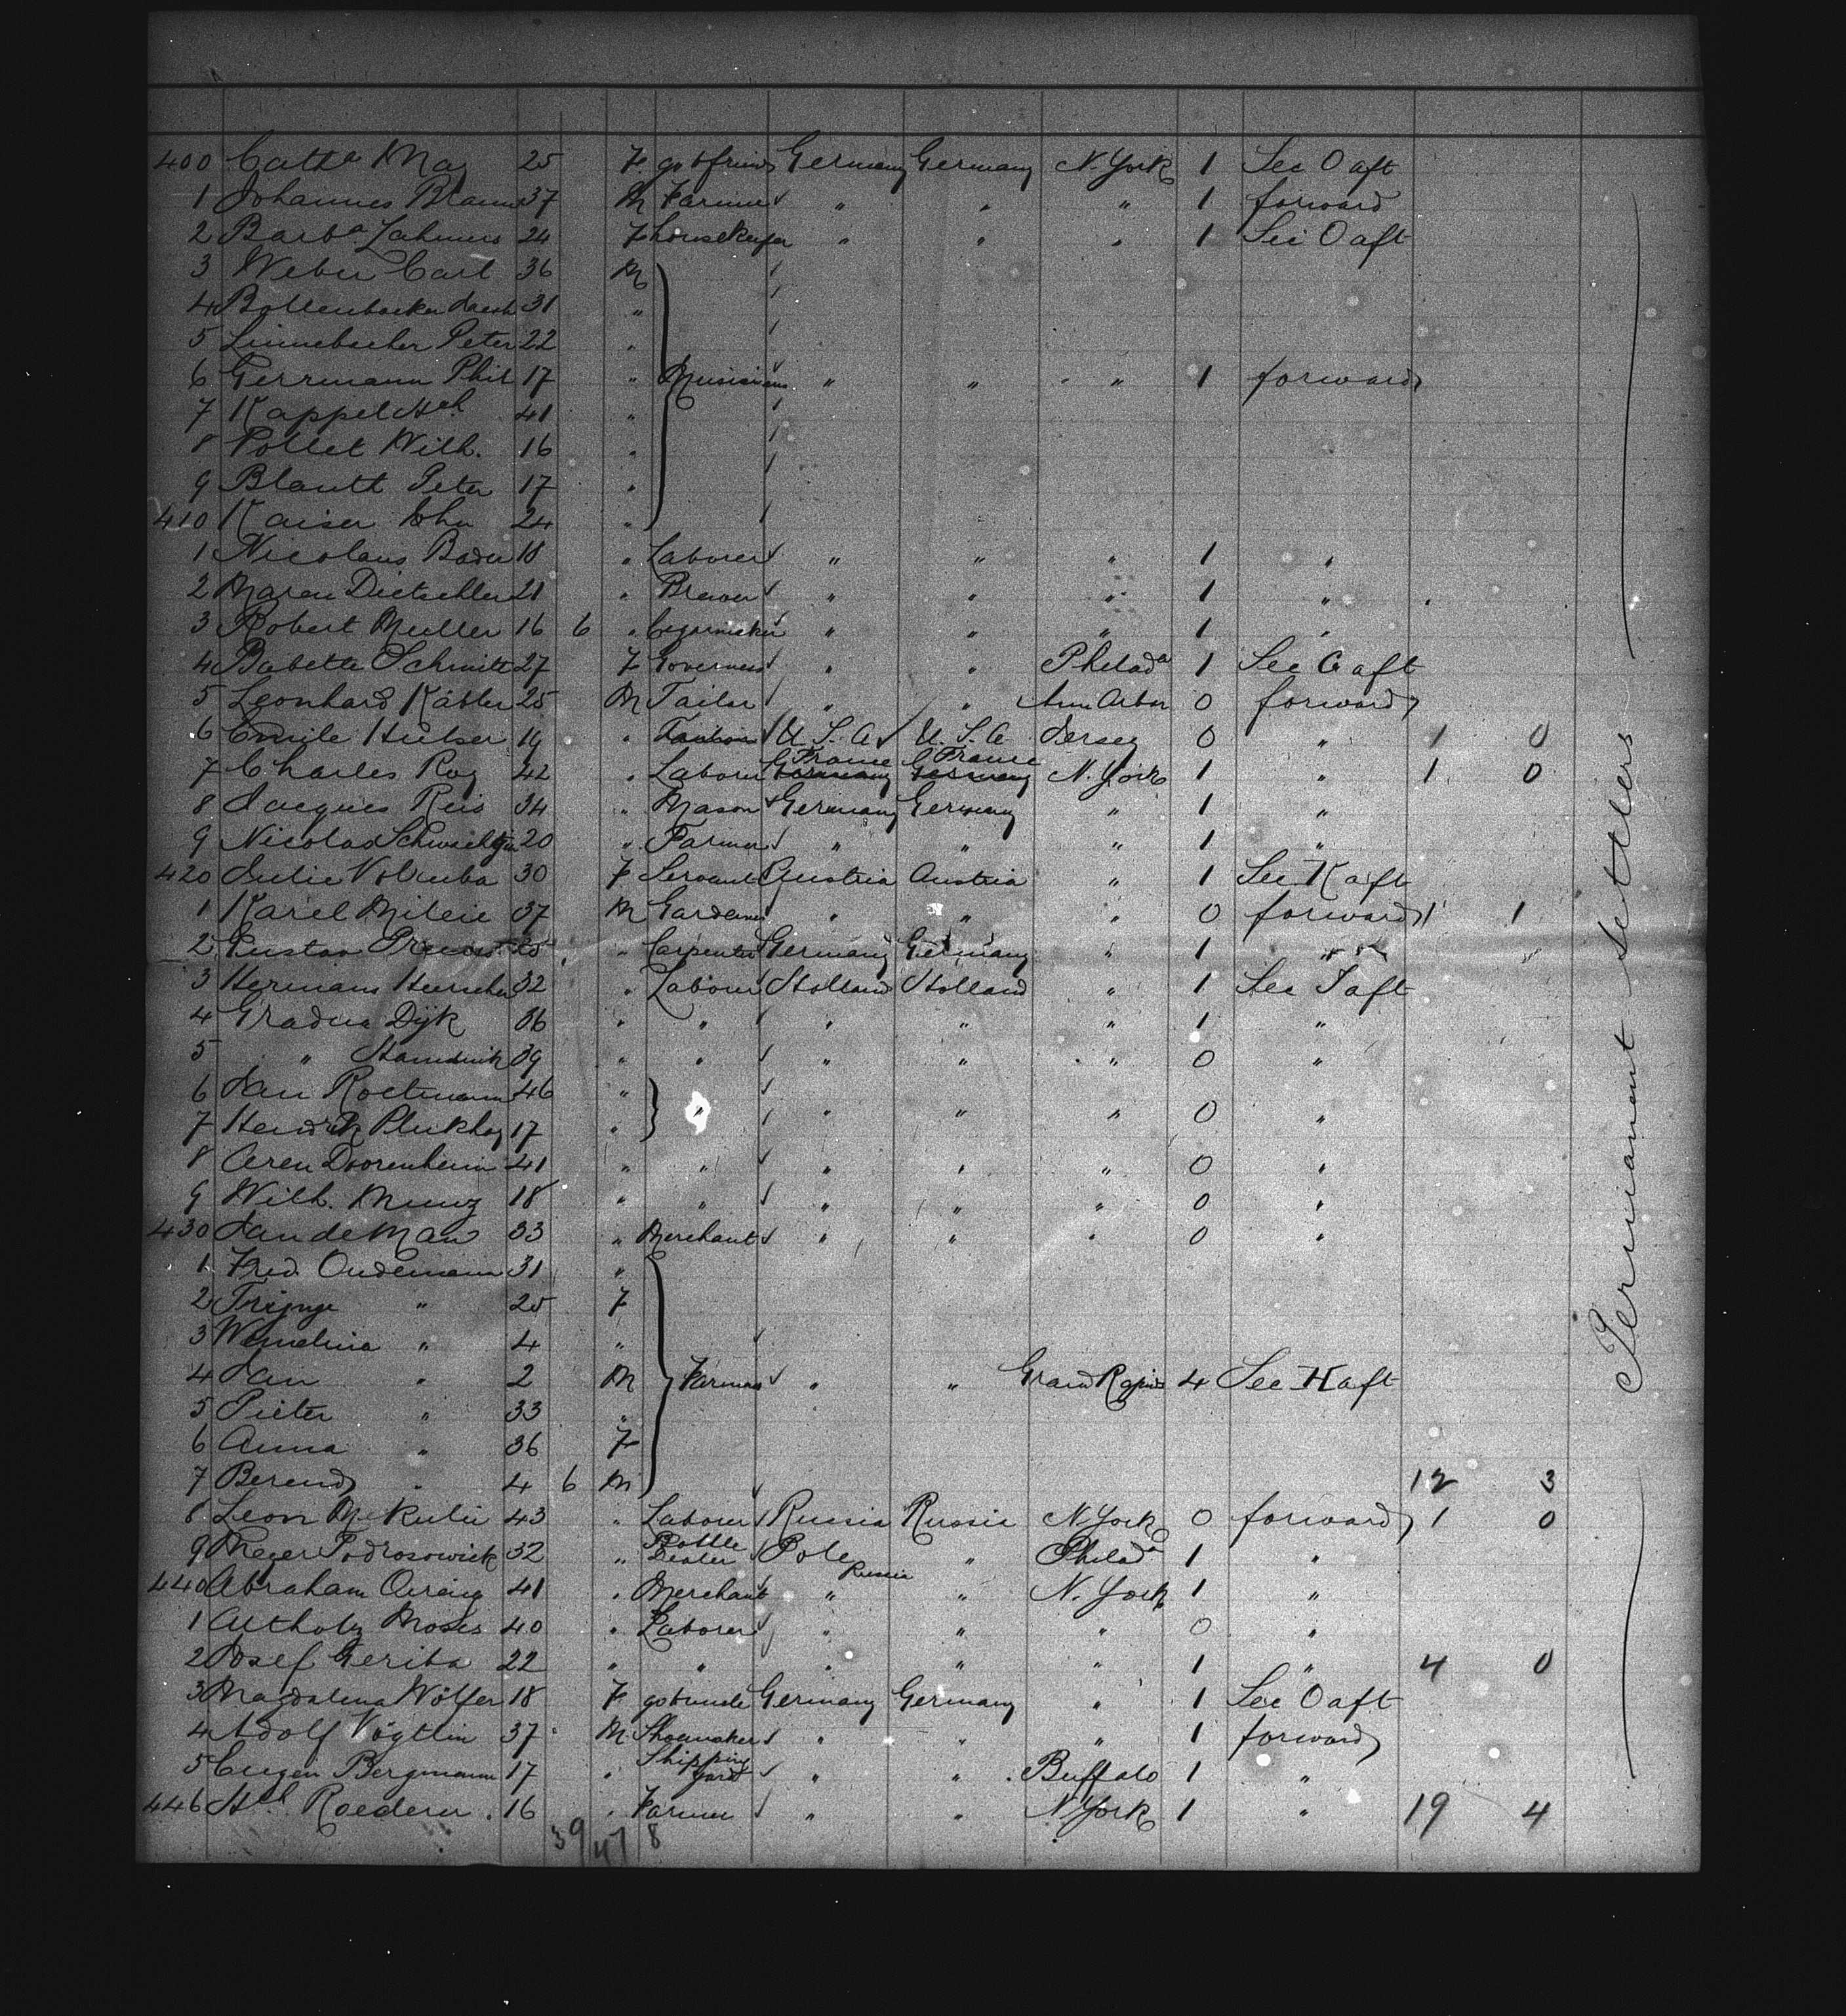 400 Cath a May 25 F. Germany Germany N. York 1 Sec O aft
1 Johannes Braun 37 M Farmer " " " 1 forward
2 Barb a 24 F housekeeper " " " 1 Sec O aft
3 Weber Carl 36 M
4 31 "
5 Linnebacher Peter 22 "
6 Gerrmann Phil 17 " Musicians " " " 1 forward
7 Kappel Hch 41 "
8 Pollet Wilh. 16 "
9 Blautt Peter 17 "
410 Kaiser John 24 "
1 Nicolaus Bader 18 " Laborer " " " 1 "
2 Dietschler 21 " Brewer " " " 1 "
3 Robert Muller 16 6 " Cigarmaker " " " 1 "
4 Babette Schmitt 27 F Governess " " Philad a 1 Sec G aft
5 Leonhard Käbler 25 M Tailor " " Ann Arbor 0 forward
6 Emile 19 " U. S. A U. S. A Jersey 0 " 1 0
7 Charles Roy 42 " Laborer France Germany France Germany N. York 1 " 1 0
8 Jacques Reis 34 " Mason Germany Germany " 1 "
9 Nicolas 20 " Farmer " " " 1 "
420 Julie 30 F Servant Austria Austria " 1 Sec K aft
1 Karel Mileie 37 M Gardener " " " 0 forward 1 1
2 Gustav 25 " Carpenter Germany Germany " 1 "
3 Hermans 32 " Laborer Holland Holland " 1 Sec J aft
4 Gradus Dijk 36 " " " " " 1 "
5 " 39 " " " " " 0 "
6 Jan Roelmann 46 "
7 Hendrik 17 " " " " " 0 "
8 Aren Doorenheim 41 " " " " " 0 "
9 Wilh. Munz 18 " " " " " 0 "
430 Jan de Man 33 " Merchant " " " 0 "
1 Fred. Oudemann 31 "
2 Trijnge " 25 F
3 " 4 "
4 Jan " 2 M Farmer " " Grand Rapids 4 Sec H aft
5 Pieter " 33 "
6 Anna " 36 F
7 Berend " 4 6 M 12 3
8 Leon 43 " Laborer Russia Russia N. York 0 forward 1 0
9 Meyer Podrosowick 32 " Bottle Dealer Pole Russia " Philad a 1 "
440 Abraham 41 " Merchant " " N. York 1 "
1 Altholz Moses 40 " Laborer " " " 0 "
2 Josef Geriba 22 " " " " " 1 " 4 0
3 Magdalena Wölfer 18 F Germany Germany " 1 Sec O aft
4 Adolf Vögtlin 37 M Shoemaker " " " 1 forward
5 Eugen Bergmann 17 " Shipping " " Buffalo 1 "
446 Hch Roederer 16 " Farmer " " N. York 1 " 19 4
39 47 8
Permanent settlers